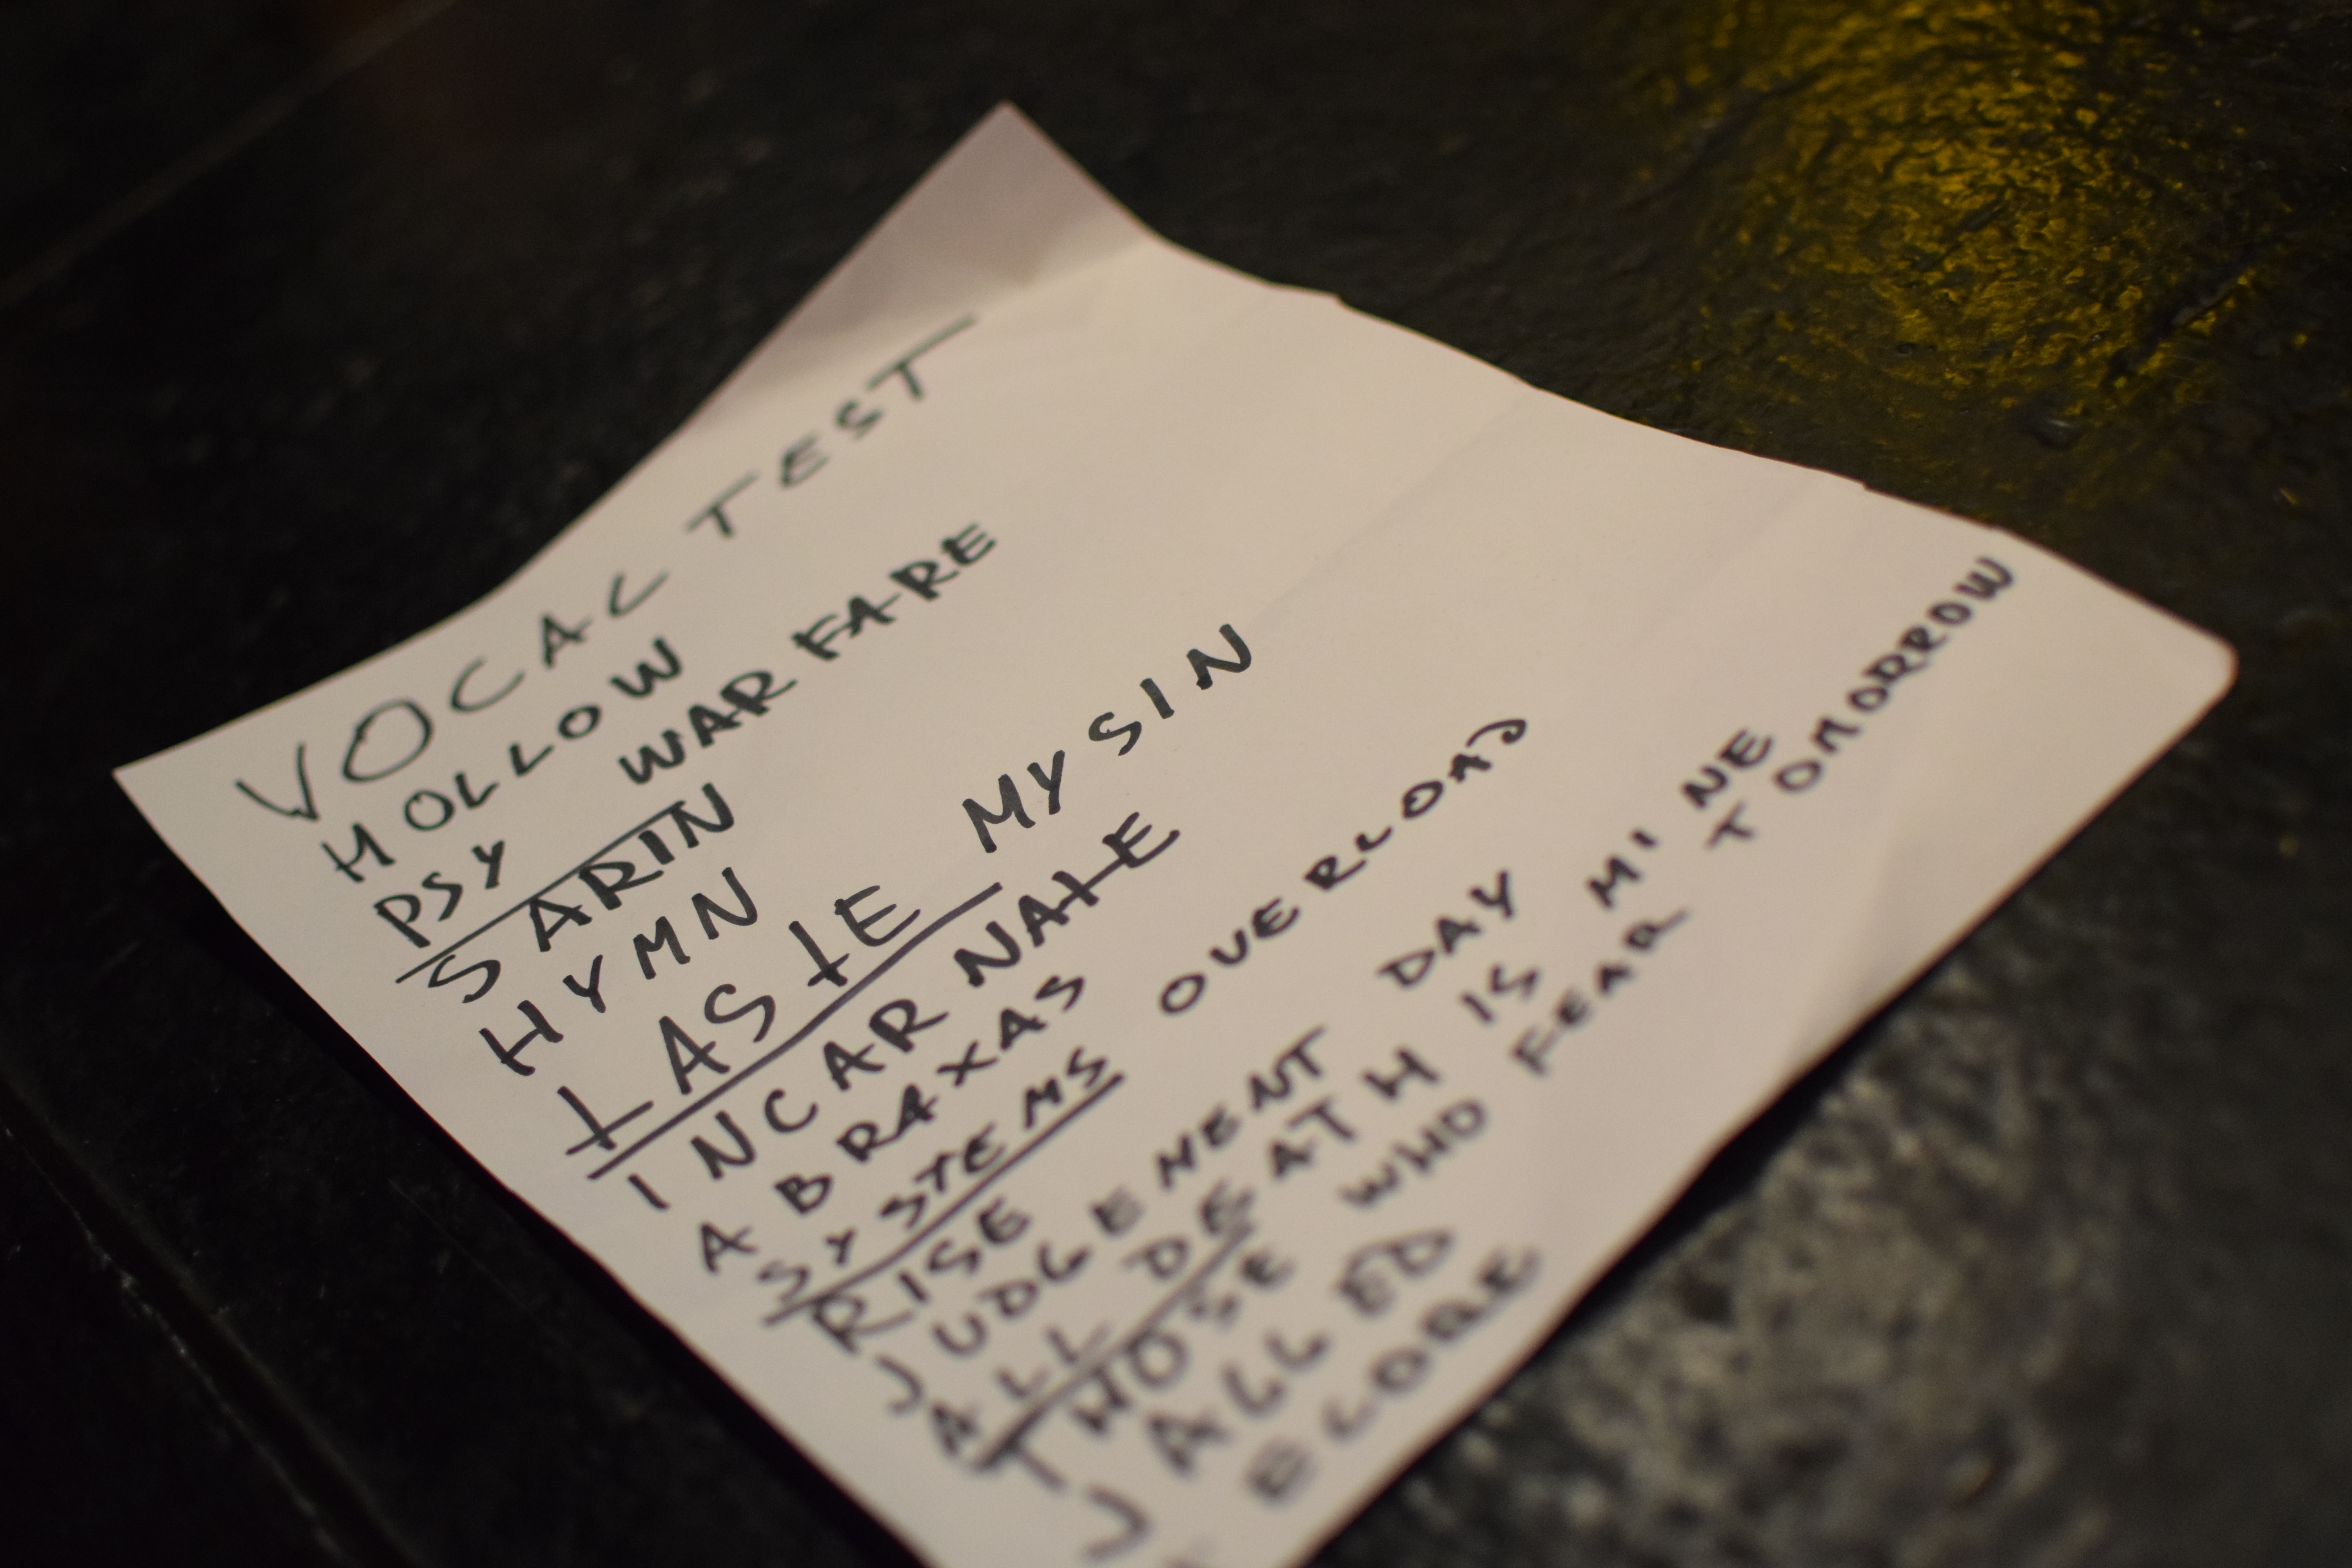 VOCAL TEST
HOLLOW
PSY WAR FARE
SARIN
HYMN
TASTE MY SIN
INCARNATE
ABRAXAS
SYSTEMS OVERLOAD
RISE
JUDGEMENT DAY
ALL DEATH IS MINE
THOSE WHO FEAR TOMORROW
JALLED